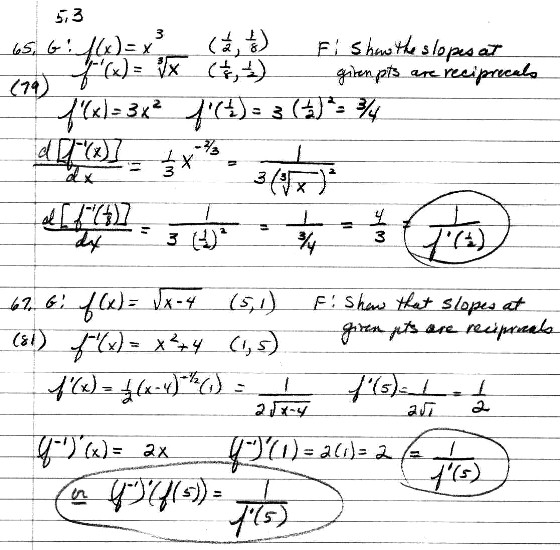 5.3
65. G: f(x) = x³ (1/2, 1/8) F: Show the slopes at
f⁻¹(x) = ∛x (1/8, 1/2) given pts are reciprocals
(79)
f'(x) = 3x² f'(1/2) = 3 (1/2)² = 3/4
d[f⁻¹(x)]/dx = 1/3 x^(-2/3) = 1/(3(∛x)²)
d[f⁻¹(1/8)]/dx = 1/(3 (1/2)²) = 1/(3/4) = 4/3 = 1/f'(1/2)
67. G: f(x) = √(x-4) (5,1) F: Show that slopes at
(81) f⁻¹(x) = x²+4 (1,5) given pts are reciprocals
f'(x) = 1/2 (x-4)^(-1/2) (1) = 1/(2√(x-4)) f'(5) = 1/(2√1) = 1/2
(f⁻¹)'(x) = 2x (f⁻¹)'(1) = 2(1) = 2 = 1/f'(5)
or (f⁻¹)'(f(5)) = 1/f'(5)